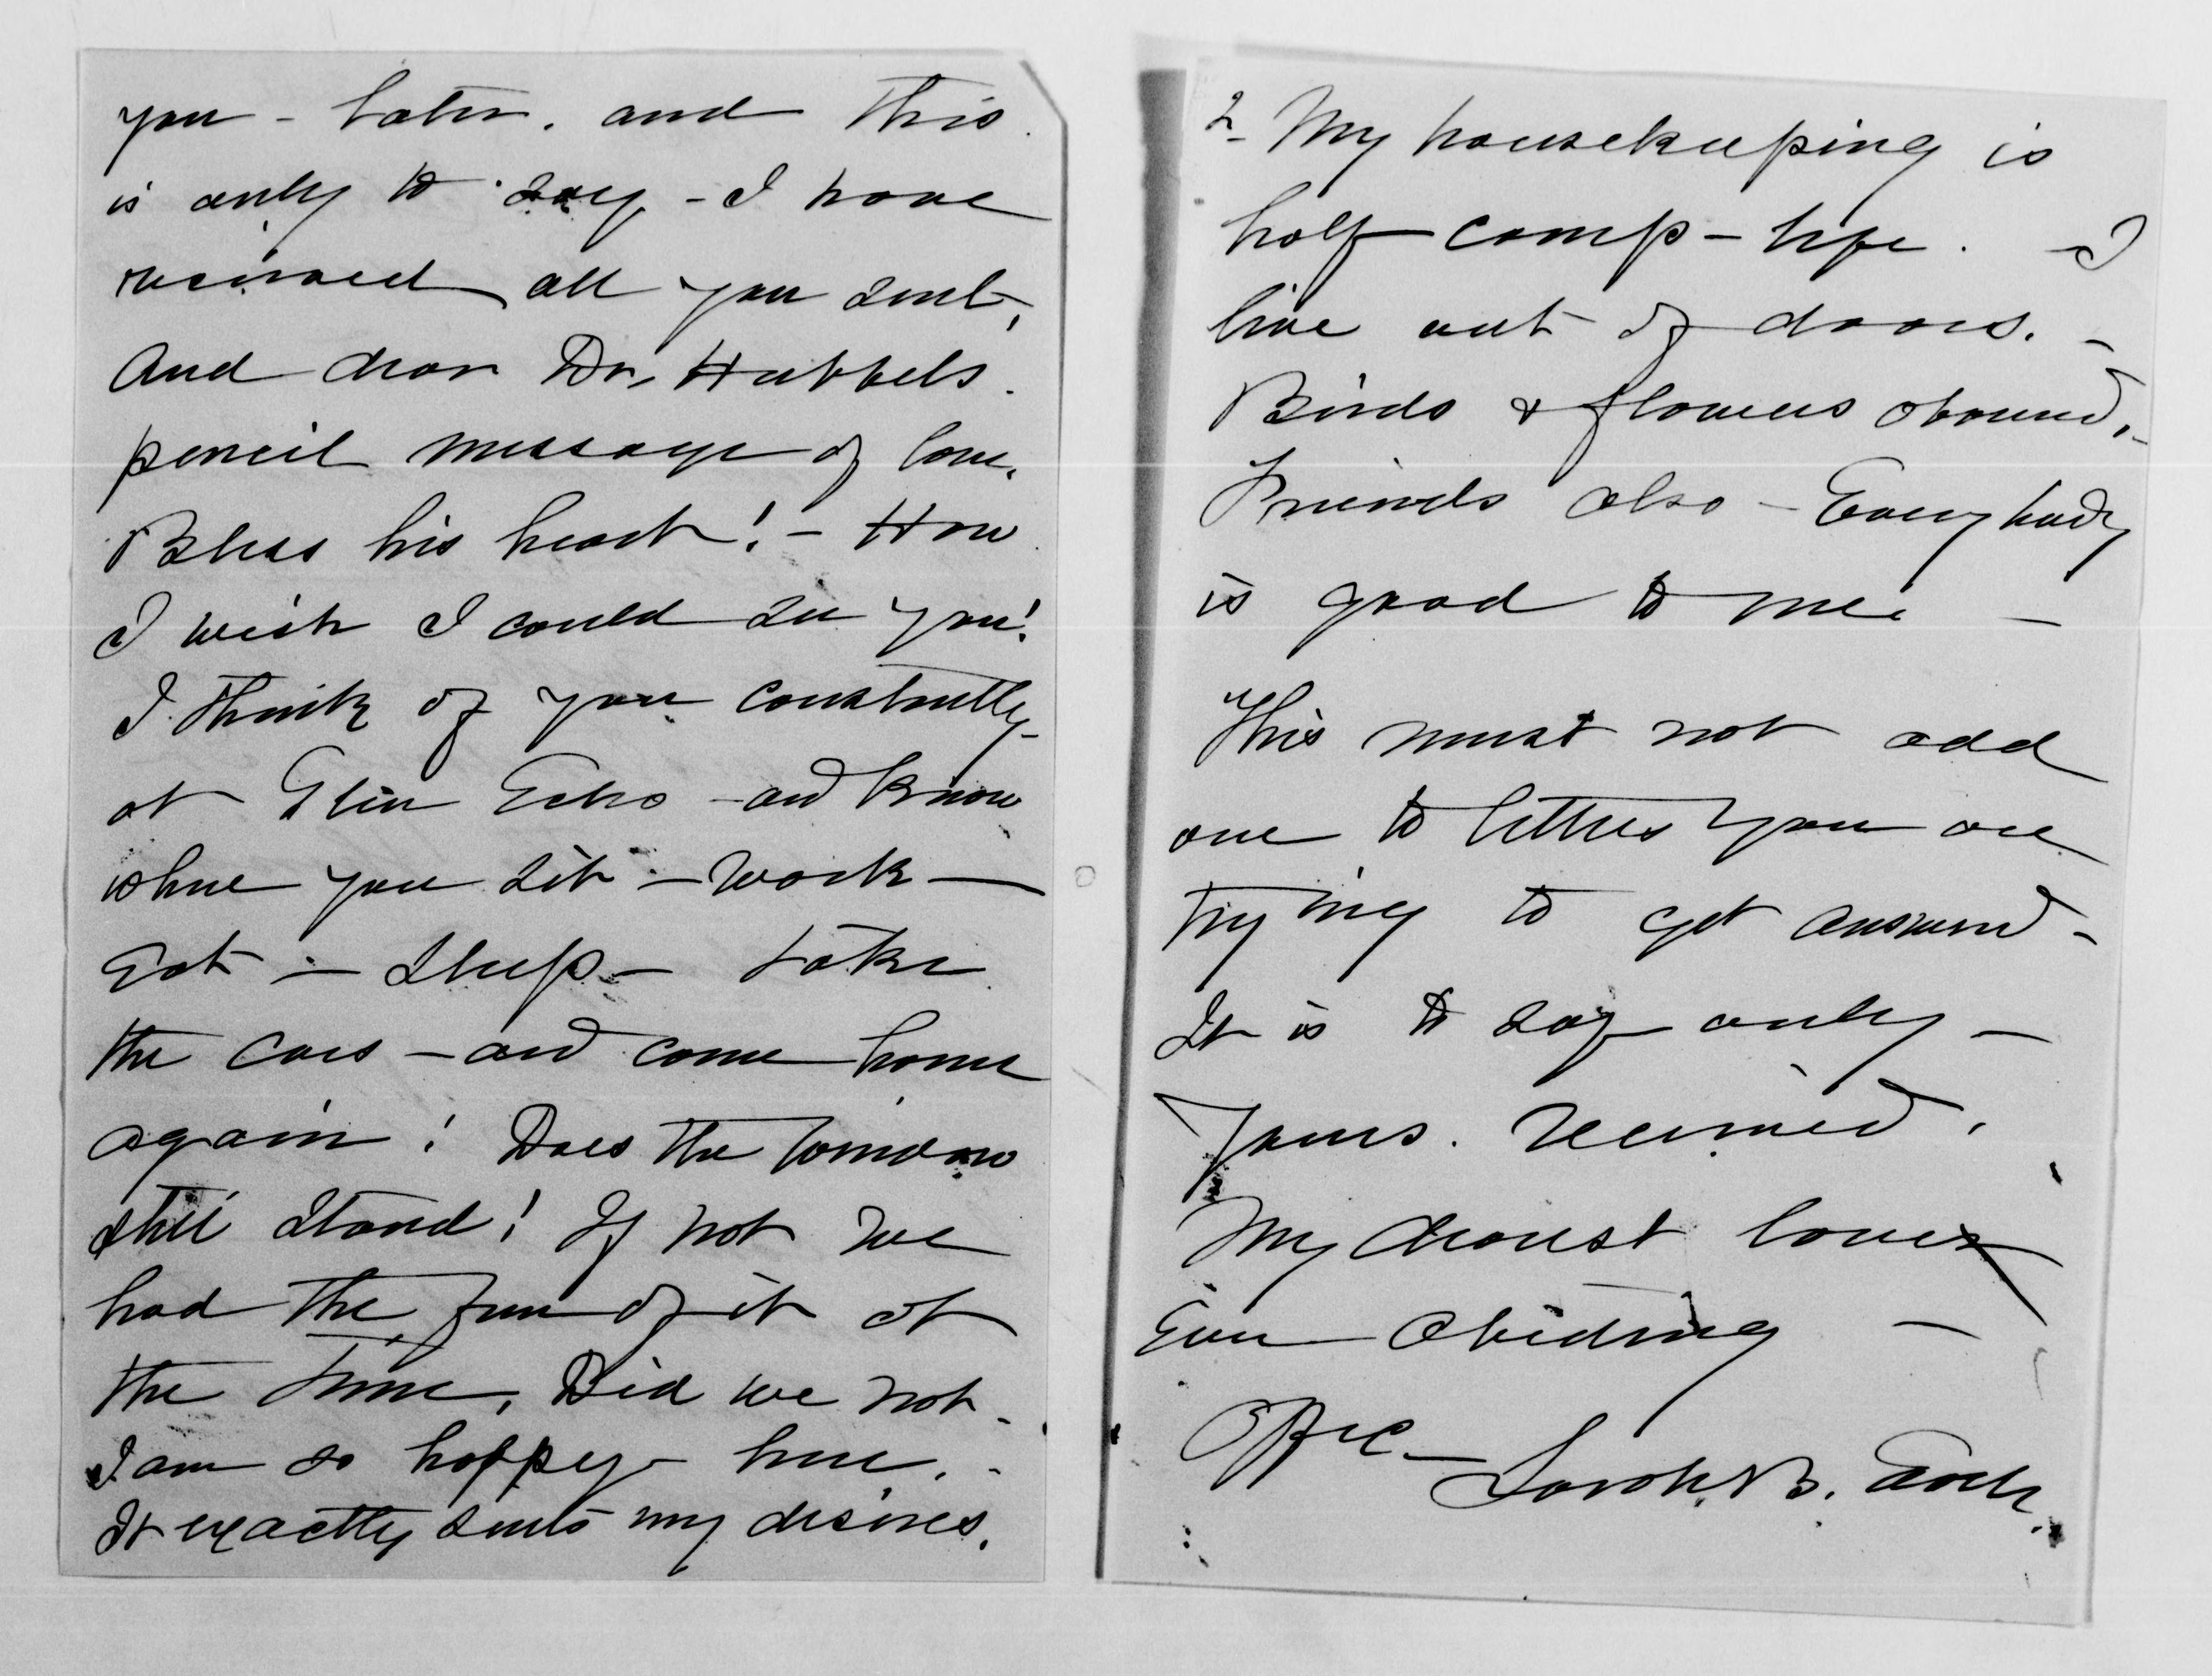 you - later. and this
is only to say - I have
received all you sent,
And dear Dr. Hubbels.
pencil message of love.
Bless his heart! - How
I wish I could see you!
I think of you constantly
at Glen Echo - and know
where you sit - work -
Eat - sleep - take
the cars - and come home
again! Does the window
still stand! If not we
had the fun of it at
the time, Did we not -
I am so happy here. -
It exactly suits my desires.
2 - My housekeeping is
half camp - life. I
live out of doors. -
Birds & flowers abound. -
Friends also - Everybody
is good to me -
This must not add
one to letters you are
trying to get answered -
It is to say only -
Yours. received.
My dearest love
Ever abiding -
Sarah B. Earle.